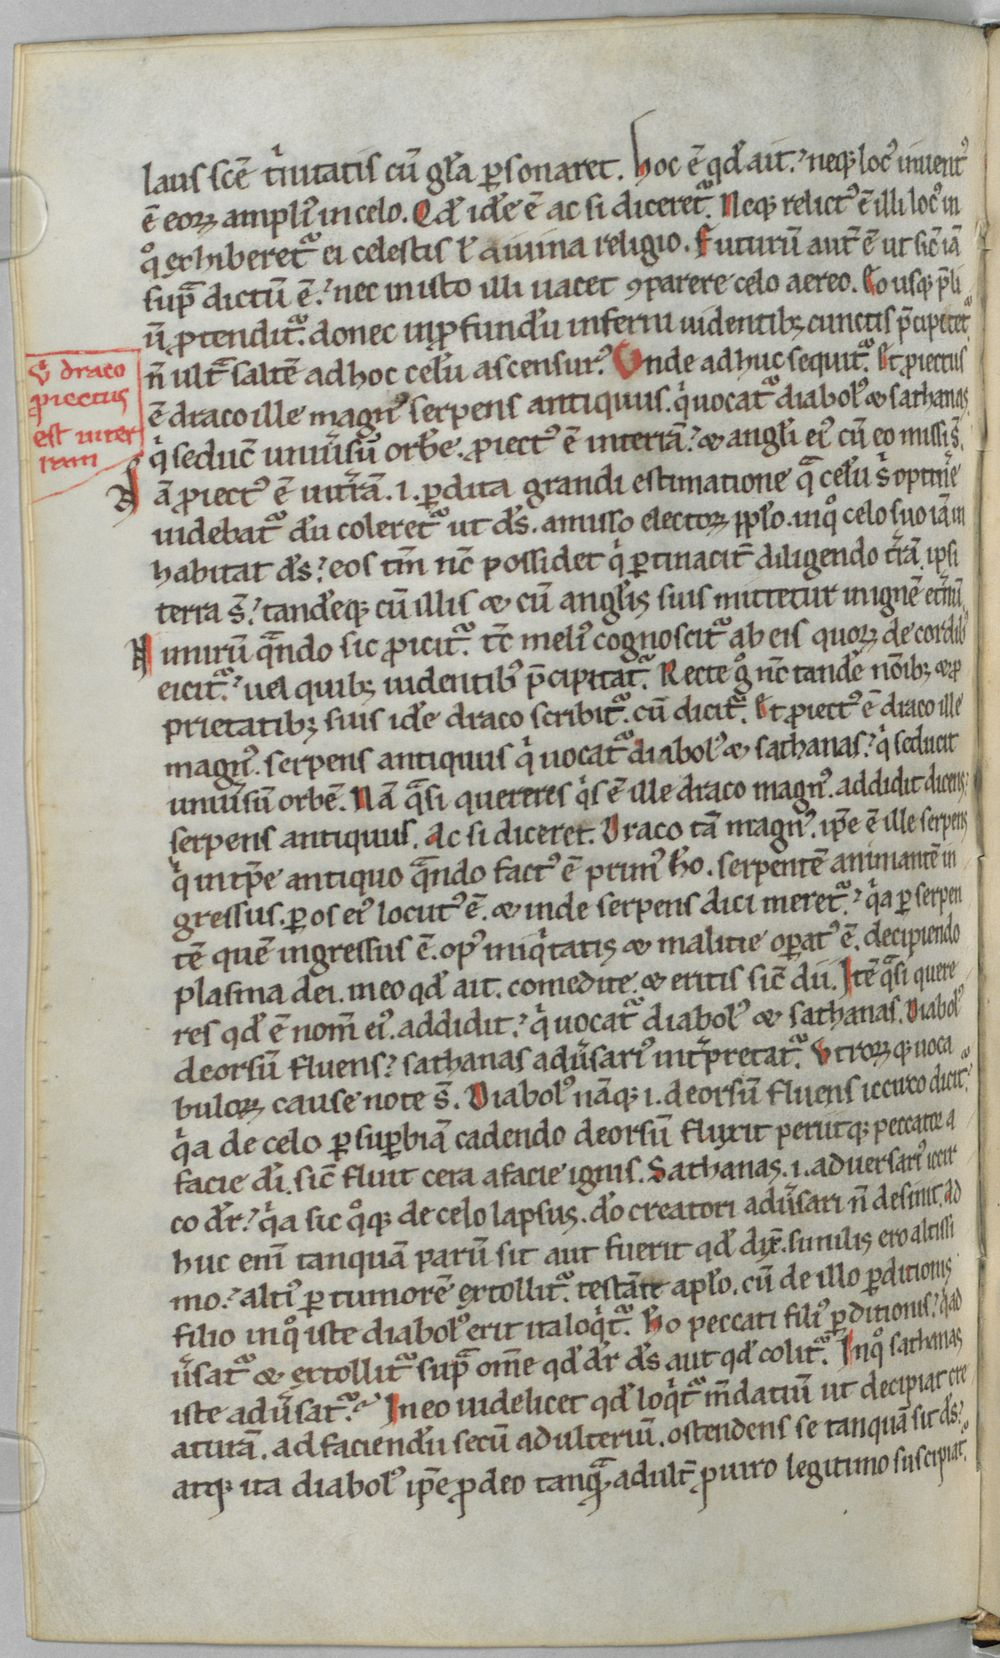 laus scē t'nitatis cū gł'a ꝑsonaret. hoc ē qđ ait.' neqꝫ loc' inuent'
ē eoꝝ ampli' in celo. Qđ idē ē ac si diceret'. Neqꝫ relict' ē illi loc' in
q° exhiberet' ei celestis ł diuina religio. Futurū aut ē ut sic iā
sup̄ dictū ē.' nec in isto illi uacet ꝯparere celo aereo. Eo usqꝫ p̄li
ū ꝓtendit'. donec in ꝓfundū inferni uidentibꝫ cunctis p̄cipitet'
n̄ ult saltē ad hoc celū ascensur'. Unde adhuc sequit'. Et ꝓiectus
V draco
ꝓiectus
est in ter
ram
ē draco ille magn' serpens antiquus. q' uocat' diabol' & sathanas
q' seduc uniuersū orbē. ꝓiect' ē in terrā.' & angli ei' cū eo missi s̄.
Iā ꝓiect' ē in t'rā. i. ꝑdita grandi estimatione qa celū s' optin'e
uidebat' dū coleret' ut ds. amisso electoꝝ pplo. in q° celo suo iā in
habitat ds.' eos tm̄ nc possidet q' ꝑtinacit diligendo t'rā. ipsi
terra s̄.' tandēqꝫ cū illis & cū anglis suis mittetur in ignē et'nū
Nimirū qndo sic ꝓicit'. tc meli' cognoscit' ab eis quoꝝ de cordibꝫ
eicit'.' uel quibꝫ uidentibꝫ p̄cipitat'. Recte g° nc tandē noibꝫ & ꝓ
prietatibꝫ suis idē draco scribit'. cū dicit'. Et ꝓiect' ē draco ille
magn'. serpens antiquus q' uocat' diabol' & sathanas.' q' seducit
uniu'sū orbē. Nā qsi quereres q's ē ille draco magn'. addidit dicens.'
serpens antiquus. Ac si diceret. Draco tā magn'. ipe ē ille serpens
q' in tpe antiquo qndo fact' ē prim' ho. serpentē animantē in
gressus. ꝑ os ei' locut' ē. & inde serpens dici meret'.' q'a ꝑ serpen
tē quē ingressus ē. op' iniq'tatis & malitie oꝑat' ē. decipiendo
plasma dei. in eo qđ ait. comedite. & eritis sic dii. Itē qsi quere
res qđ ē nom̄ ei'. addidit.' q' uocat' diabol' & sathanas. Diabol'
deorsū fluens.' sathanas adu'sari' int'pretat'. Utroꝝqꝫ uoca
buloꝝ cause note s̄. Diabol' nāqꝫ .i. deorsū fluens iccirco dicit'.'
q'a de celo ꝑ suꝑbiā cadendo deorsū fluxit periitqꝫ peccator a
facie di. sic fluit cera a facie ignis. Sathanas .i. aduersari' iccir
co dr.' q'a sic q°qꝫ de celo lapsus. do creatori adu'sari n̄ desinit. ad
huc eni tanquā parū sit aut fuerit qđ dix. similis ero altissi
mo.' alti' ꝑ tumorē extollit'. testante aplo. cū de illo ꝑditionis
filio in q° iste diabol' erit ita loq't'. Ho peccati fili' ꝑditionis.' q' ad
u'sat' & extollit' sup̄ ome qđ dr ds aut qđ colit'. In q° sathanas
iste adu'sat'.' In eo uidelicet qđ loq't' m̄datiū ut decipiat cre
aturā. ad faciendū secū adulteriū. ostendens se tanquā sit ds.'
atqꝫ ita diabol' ipe ꝓ deo tanqꝫ adult ꝓ uiro legitimo suscipiat'.